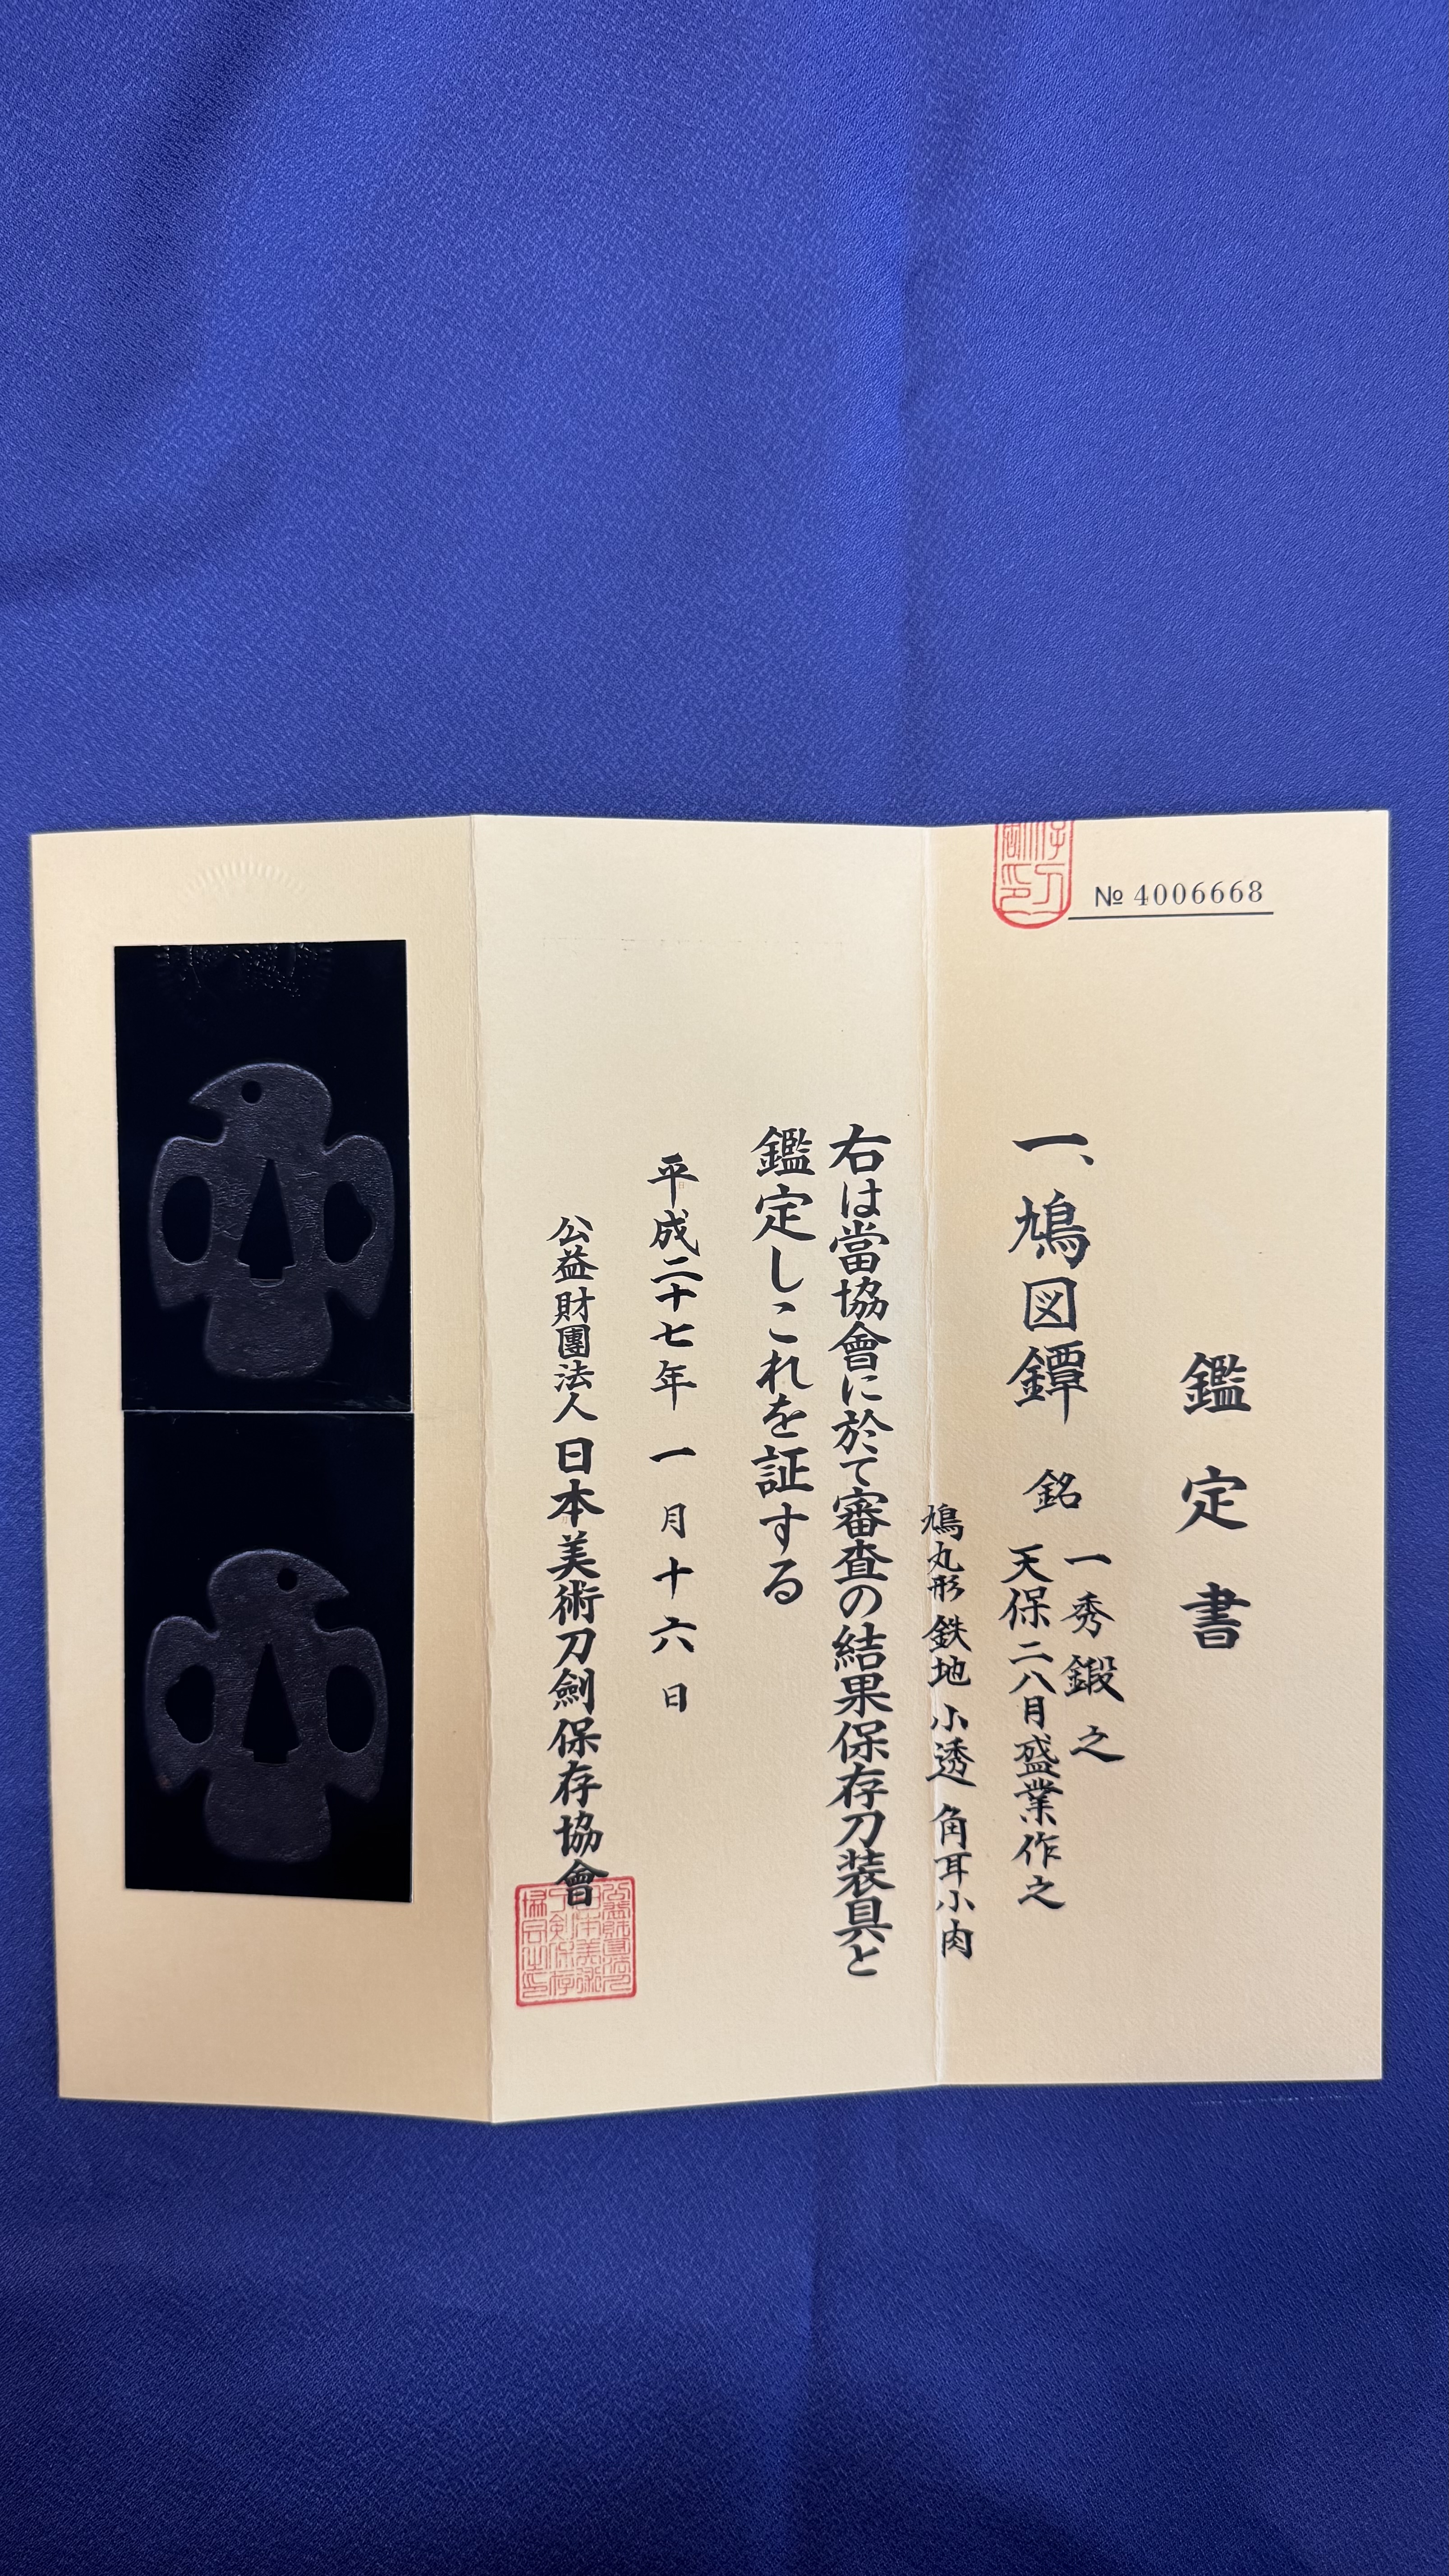 № 4006668
鑑定書
一、鳩図鐔 銘 一秀鍛之
天保二八月盛業作之
鳩丸形 鉄地 小透 角耳小肉
右は當協會に於て審査の結果保存刀装具と
鑑定しこれを証する
平成二十七年一月十六日
公益財團法人 日本美術刀劍保存協會